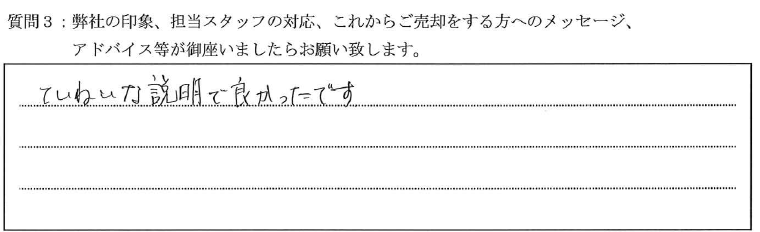 質問３：弊社の印象、担当スタッフの対応、これからご売却をする方へのメッセージ、
アドバイス等が御座いましたらお願い致します。
ていねいな説明で良かったです